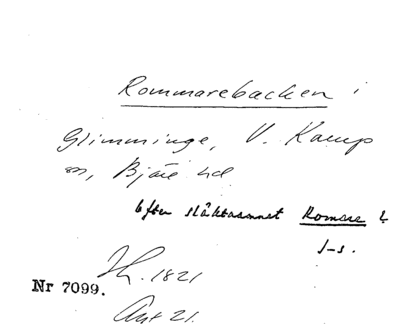 Rommarebacken i
Glimminge, V. Karup
sn, Bjäre hd
Efter släktnamnet Romare?
J-s.
Th. 1821
Nr 7099.
Ant 21.